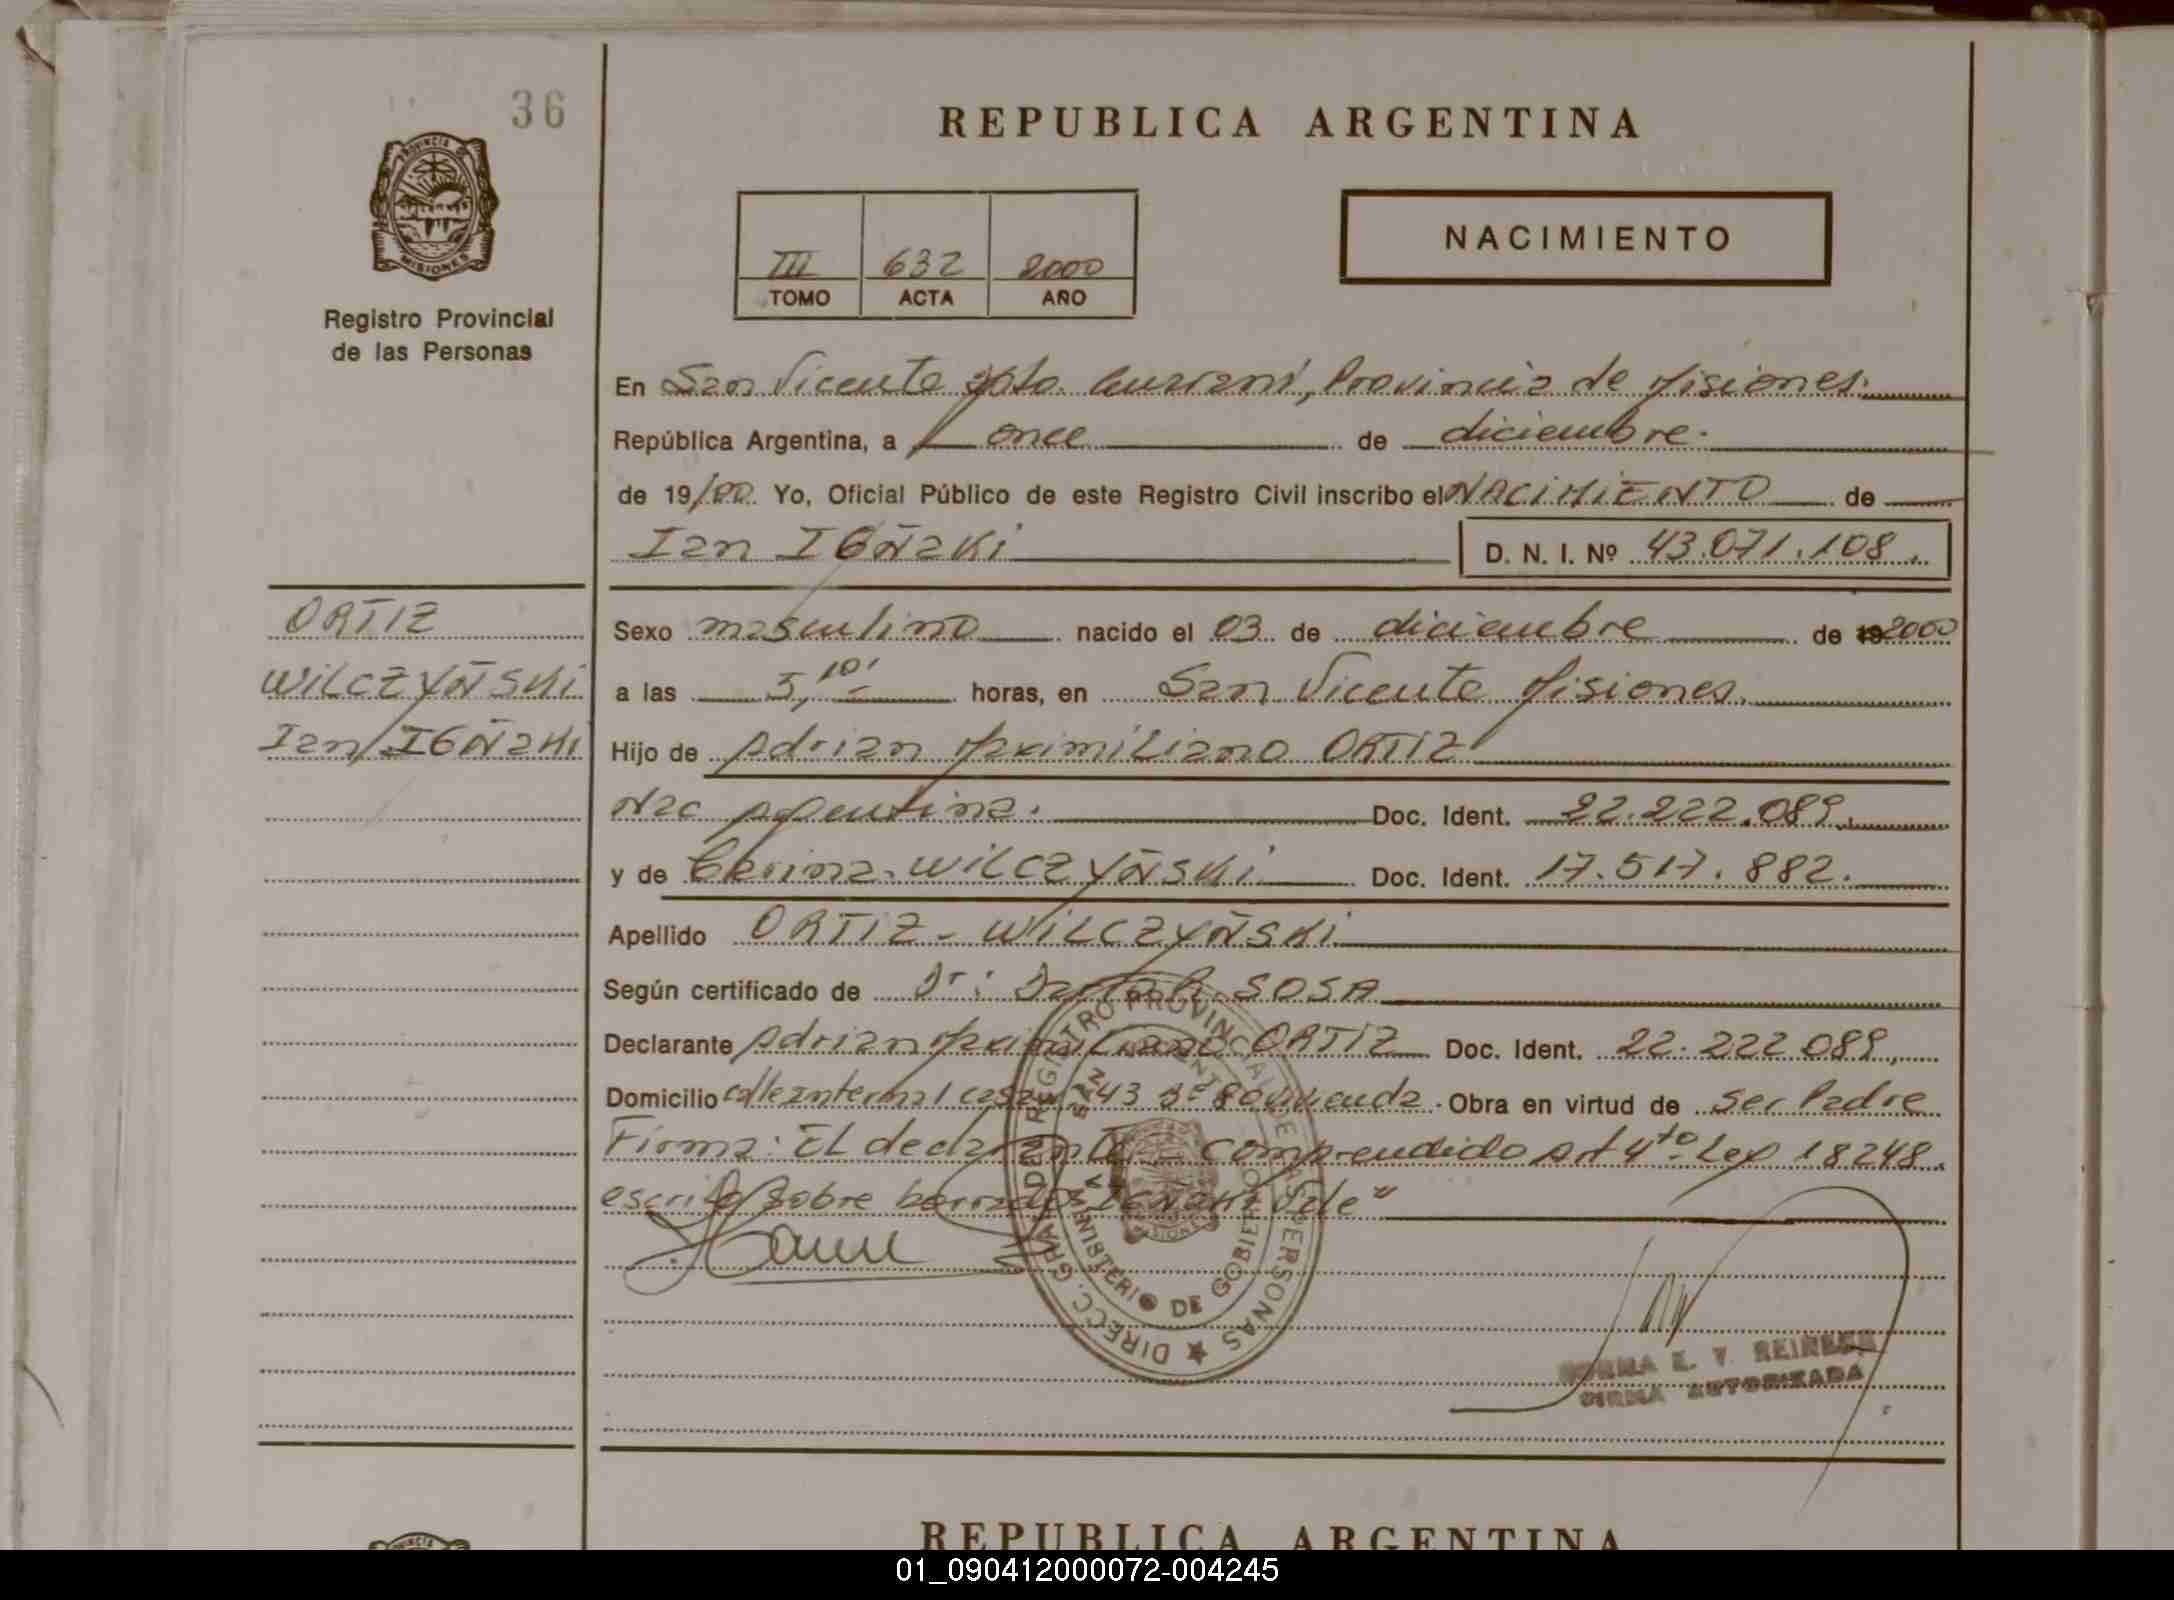 36
REPUBLICA ARGENTINA
PROVINCIA DE
MISIONES
Registro Provincial
de las Personas
III 632 2000
TOMO ACTA AÑO
NACIMIENTO
En San Vicente Dpto. Guaraní, Provincia de Misiones.
República Argentina, a once de diciembre.
de 19/00. Yo, Oficial Público de este Registro Civil inscribo el NACIMIENTO de
Ian IGÑaKi D. N. I. Nº 43.071.108.
ORTIZ
WILCZYÑSKi
Ian IGÑaKi
Sexo masculino nacido el 03 de diciembre de 19 2000
a las 5,10' horas, en San Vicente Misiones.
Hijo de Adrian Maximiliano ORTIZ
Nac Argentina. Doc. Ident. 22.222.089.
y de WILCZYÑSKi Doc. Ident. 17.517.882.
Apellido ORTIZ - WILCZYÑSKi
Según certificado de Dr: SOSA
Declarante Adrian Maximiliano ORTIZ Doc. Ident. 22.222 089,
Domicilio calle interna 1 casa 43 Bº 80 vivienda. Obra en virtud de ser Padre
Firma: El declarante - comprendido Art 4to. Ley 18248.
escrito sobre borrado IGÑaKi Vale"
DIRECC. GRAL. DEL REGISTRO PROVINCIAL DE LAS PERSONAS
MINISTERIO DE GOBIERNO
SAN VICENTE
NORMA E. V.
FIRMA AUTORIZADA
REPUBLICA ARGENTINA
01_090412000072-004245